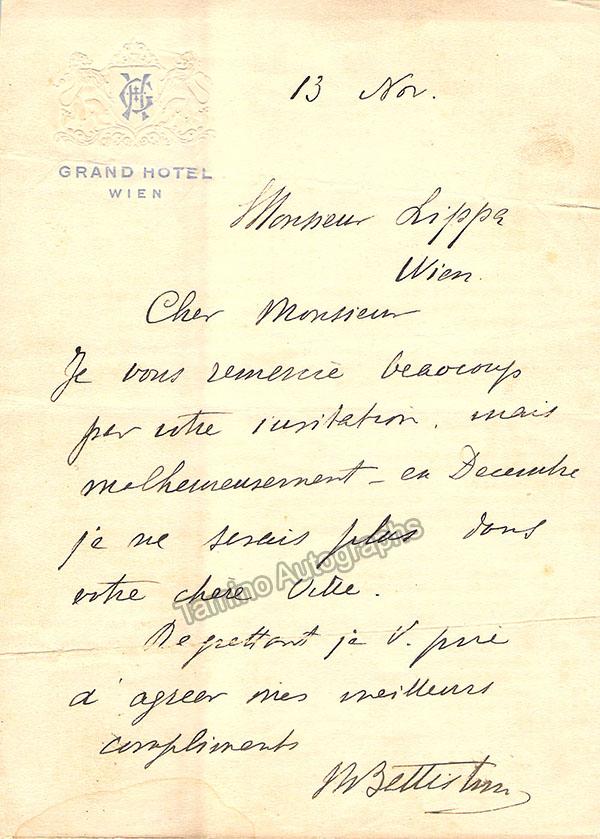 13 Nov.
GRAND HOTEL
WIEN
Monsieur Lippa
Wien.
Cher Monsieur
Je vous remercie beaucoup
par votre invitation. mais
malheureusement – en Decembre
je ne serais plus dans
votre chere Ville.
Tamino Autographs
Regrettant je V. prie
d'agreer mes meilleurs
compliments
MBattistini